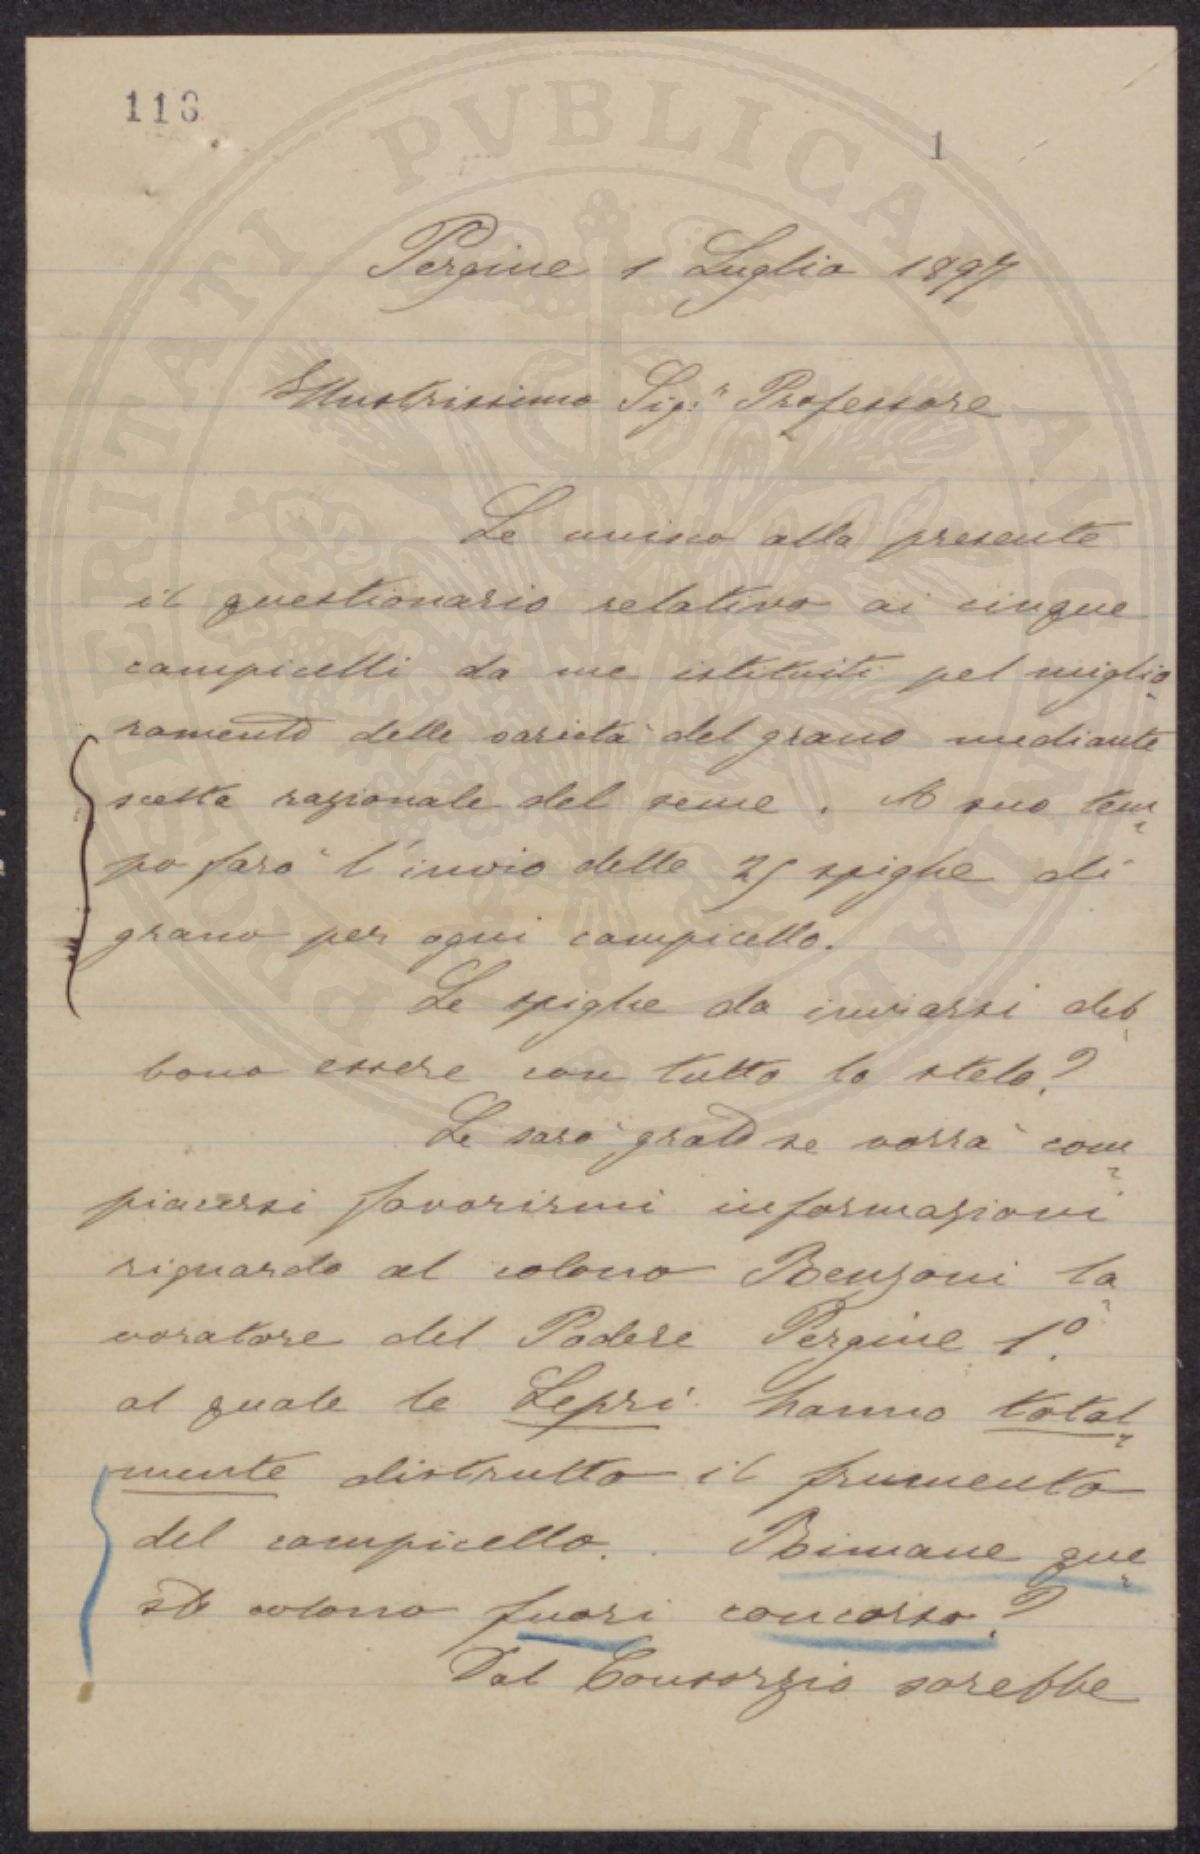 116
1
Pergine 1 Luglio 1897
Illustrissimo Sig.r Professore
Le unisco alla presente
il questionario relativo ai cinque
campicelli da me istituiti pel miglio-
ramento delle varietà del grano mediante
scelta razionale del seme. A suo tem-
po farò l'invio delle 25 spighe di
grano per ogni campicello.
Le spighe da inviarsi deb-
bono essere con tutto lo stelo?
Le sarò grato se vorrà com-
piacersi favorirmi informazioni
riguardo al colono Benzoni la-
voratore del Podere Pergine 1.o
al quale le Lepri hanno total-
mente distrutto il frumento
del campicello. Rimane que-
sto colono fuori concorso?
Dal Consorzio sarebbe
POSTERITATI PVBLICAE